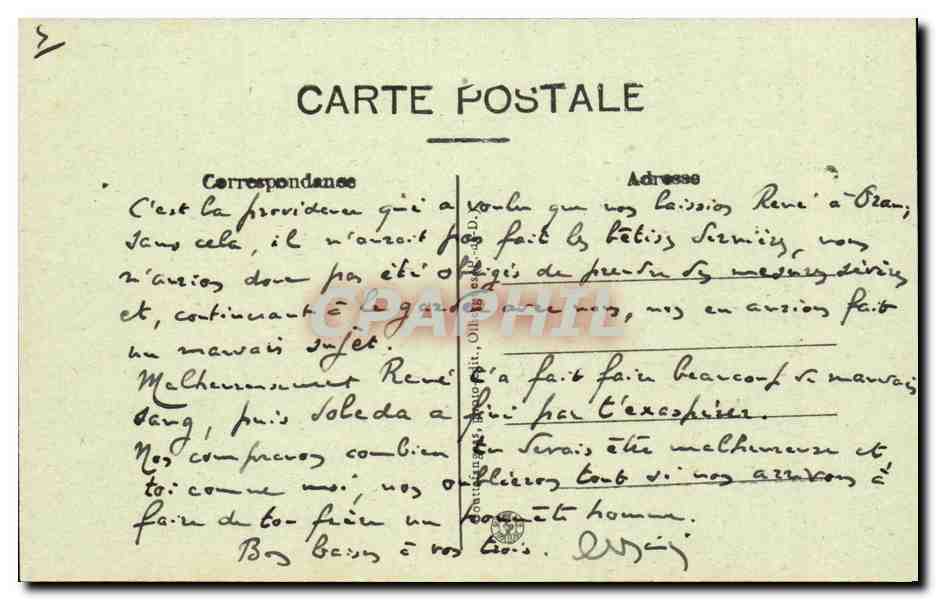 CARTE POSTALE
Correspondance
Adresse
C'est la providence qui a voulu que nous laissions René à Oran,
sans cela, il n'aurait pas fait les bêtises dernières, nous
n'aurions donc pas été obligés de prendre des mesures sévères
et, continuant à le garder avec nous, nous en aurions fait
un mauvais sujet.
Malheureusement René t'a fait faire beaucoup de mauvais
sang, puis Soleda a fini par t'exaspérer.
Nous comprenons combien tu devais être malheureuse et
toi comme moi, nous oublierons tout si nous arrivons à
faire de ton frère un honnête homme.
Bons baisers à vos trois.
CPAPHIL